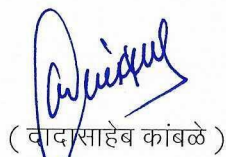 ( दादासाहेब कांबळे )